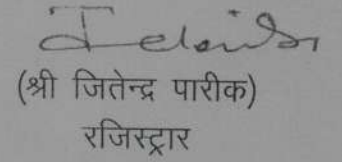 (श्री जितेन्द्र पारीक)
रजिस्ट्रार